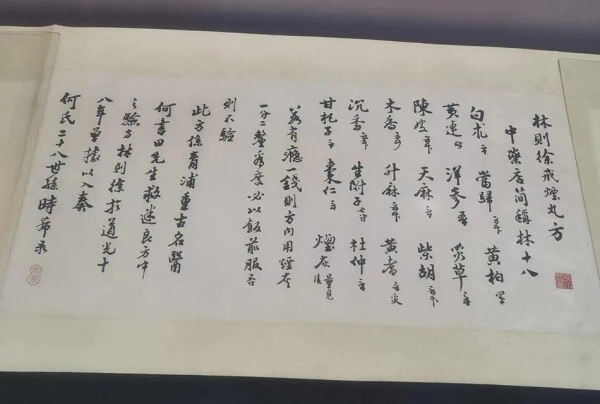 林則徐戒煙丸方
中藥店簡稱林十八
白朮 當歸 黃柏
黃連 洋參 炙草
陳皮 天麻 柴胡
木香 升麻 黃耆
沉香 生附子 杜仲
甘杞子 棗仁 煙灰 量見後
若有癮一錢則方內用煙灰
一分二釐為度必以飯前服否
則不驗
此方係青浦重古名醫
何書田先生救迷良方中
之驗方林則徐於道光十
八年曾據以入奏
何氏二十八世孫時希录